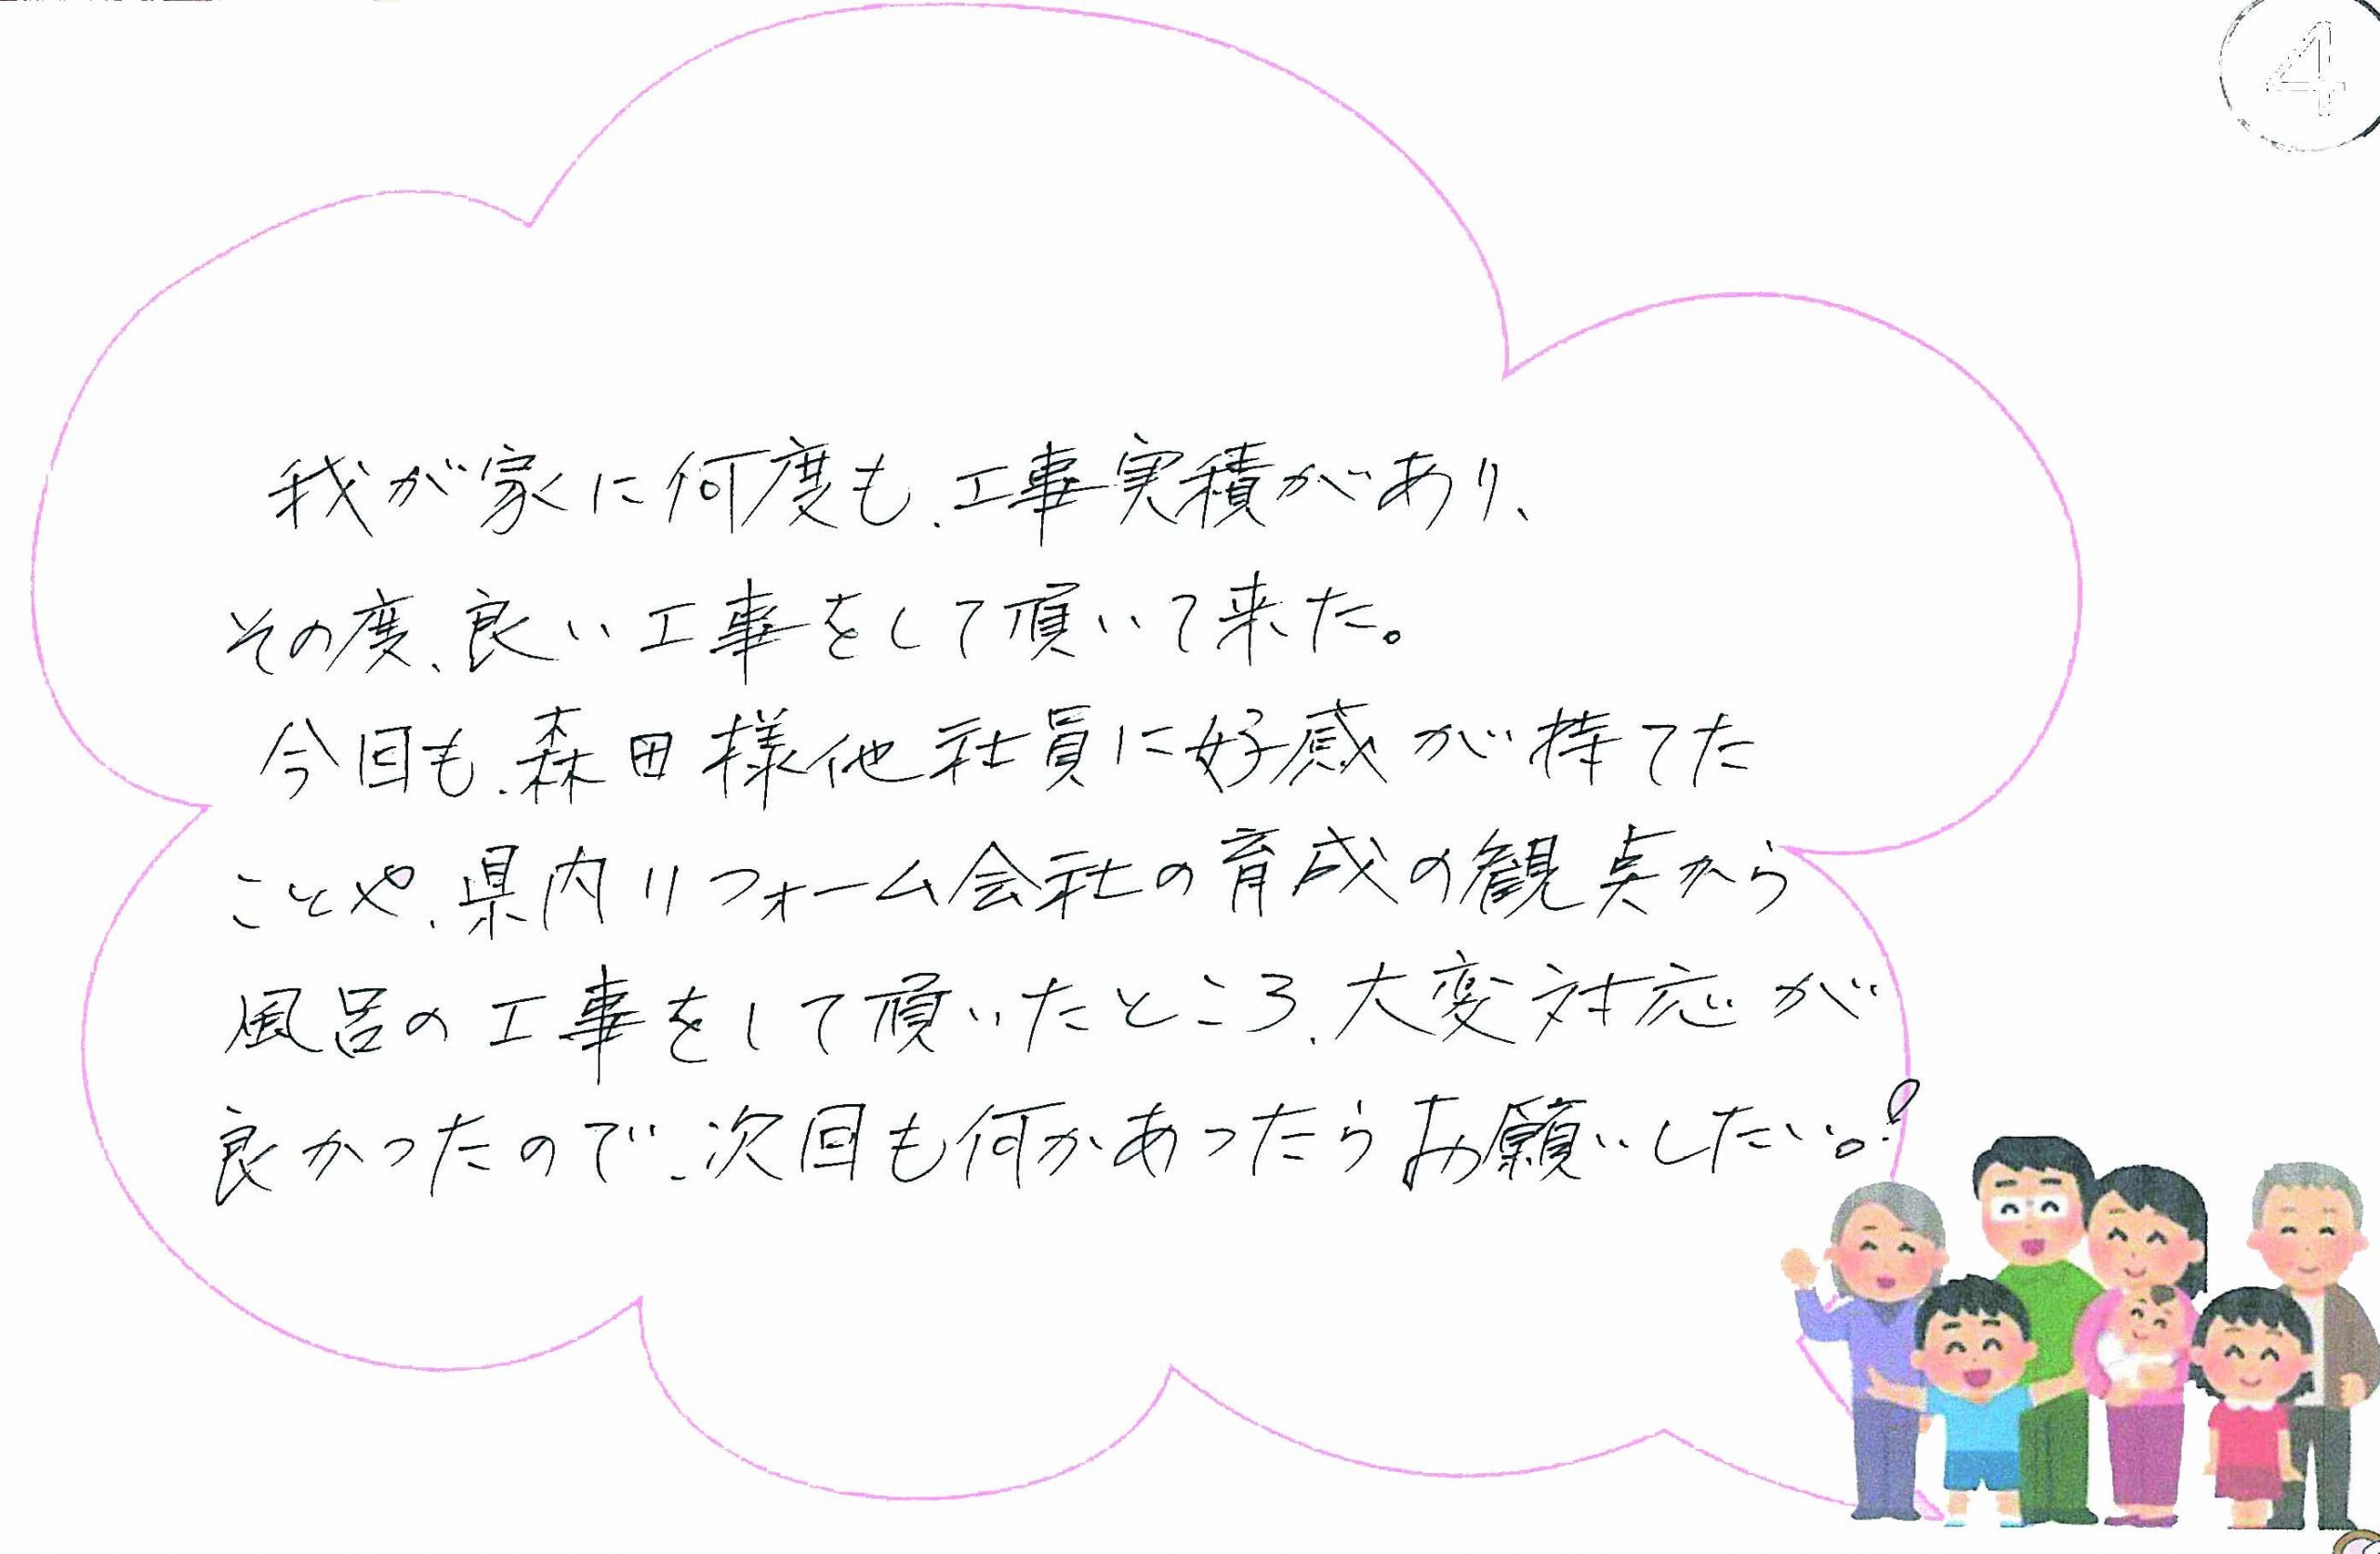 ④
我が家に何度も、工事実積があり、
その度、良い工事をして頂いて来た。
今回も、森田様他社員に好感が持てた
ことや、県内リフォーム会社の育成の観点から
風呂の工事をして頂いたところ、大変対応が
良かったので、次回も何かあったらお願いしたい。!